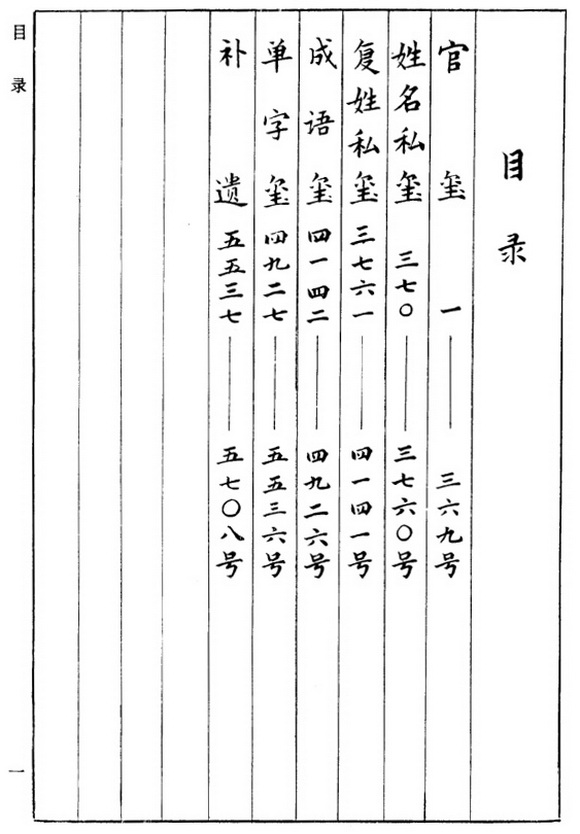 目录
官玺 一——三六九号
姓名私玺 三七〇——三七六〇号
复姓私玺 三七六一——四一四一号
成语玺 四一四二——四九二六号
单字玺 四九二七——五五三六号
补遗 五五三七——五七〇八号
目录
一